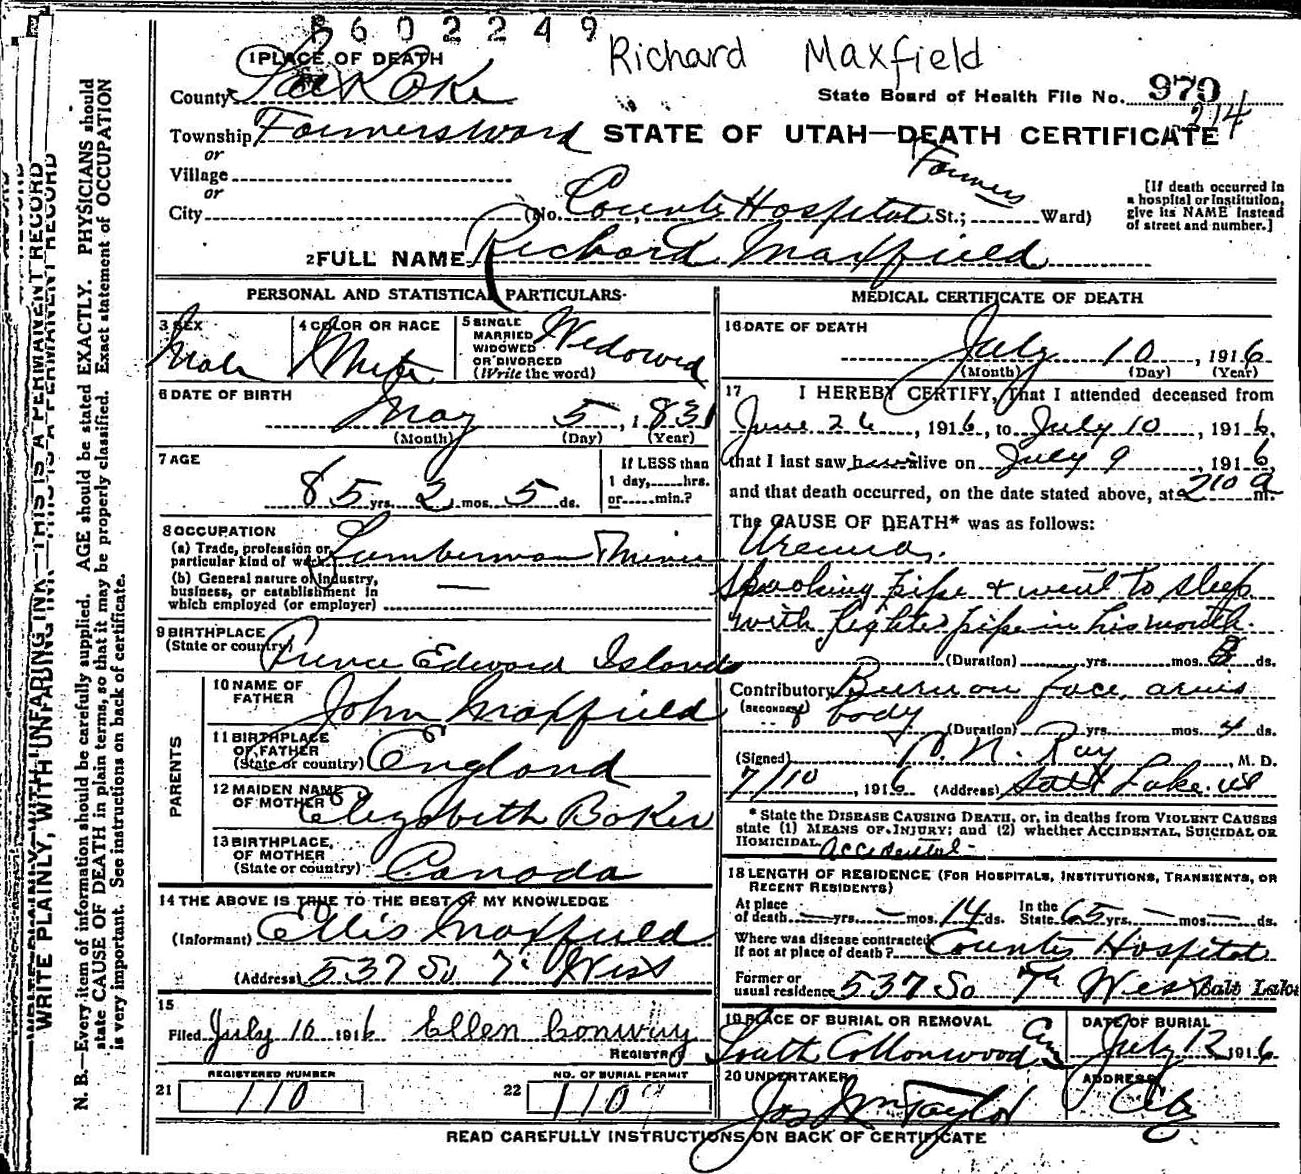 8602249
Richard Maxfield
1 PLACE OF DEATH
County Salt Lake
State Board of Health File No. 979
214
Township Farmers Ward
STATE OF UTAH—DEATH CERTIFICATE
or
Village
or
City (No. County Hospital St.; Farmers Ward)
[If death occurred in a hospital or institution, give its NAME instead of street and number.]
2 FULL NAME Richard Maxfield
PERSONAL AND STATISTICAL PARTICULARS
3 SEX Male
4 COLOR OR RACE White
5 SINGLE MARRIED WIDOWED OR DIVORCED (Write the word) Widowed
6 DATE OF BIRTH
May 5, 1831
(Month) (Day) (Year)
7 AGE
85 yrs. 2 mos. 5 ds.
If LESS than 1 day, hrs. or min.?
8 OCCUPATION
(a) Trade, profession or particular kind of work Lumberman & Miner
(b) General nature of industry, business, or establishment in which employed (or employer) —
9 BIRTHPLACE (State or country) Prince Edward Island
PARENTS
10 NAME OF FATHER John Maxfield
11 BIRTHPLACE OF FATHER (State or country) England
12 MAIDEN NAME OF MOTHER Elizabeth Baker
13 BIRTHPLACE OF MOTHER (State or country) Canada
14 THE ABOVE IS TRUE TO THE BEST OF MY KNOWLEDGE
(Informant) Ellis Maxfield
(Address) 537 So 7th West
15
Filed July 10 1916 Ellen Conway
REGISTRAR
21 REGISTERED NUMBER 110
22 NO. OF BURIAL PERMIT 110
MEDICAL CERTIFICATE OF DEATH
16 DATE OF DEATH
July 10, 1916
(Month) (Day) (Year)
17 I HEREBY CERTIFY, That I attended deceased from
June 26, 1916, to July 10, 1916,
that I last saw him alive on July 9, 1916,
and that death occurred, on the date stated above, at 210 a m.
The CAUSE OF DEATH* was as follows:
Uremia.
Smoking pipe & went to sleep
with lighted pipe in his mouth.
(Duration) yrs. mos. 3 ds.
Contributory Burn on face, arms
(SECONDARY) & body
(Duration) yrs. mos. 4 ds.
(Signed) P. N. Ray, M. D.
7/10, 1916 (Address) Salt Lake.
* State the DISEASE CAUSING DEATH, or, in deaths from VIOLENT CAUSES
state (1) MEANS OF INJURY; and (2) whether ACCIDENTAL, SUICIDAL OR
HOMICIDAL. Accidental-
18 LENGTH OF RESIDENCE (FOR HOSPITALS, INSTITUTIONS, TRANSIENTS, OR RECENT RESIDENTS)
At place of death — yrs. — mos. 14 ds. In the State 65 yrs. — mos. — ds.
Where was disease contracted If not at place of death? County Hospital
Former or usual residence 537 So 7th West Salt Lake
19 PLACE OF BURIAL OR REMOVAL South Cottonwood Cem
DATE OF BURIAL July 12, 1916
20 UNDERTAKER Jos Wm Taylor
ADDRESS City
READ CAREFULLY INSTRUCTIONS ON BACK OF CERTIFICATE
WRITE PLAINLY, WITH UNFADING INK—THIS IS A PERMANENT RECORD
N. B.—Every item of information should be carefully supplied. AGE should be stated EXACTLY. PHYSICIANS should
state CAUSE OF DEATH in plain terms, so that it may be properly classified. Exact statement of OCCUPATION
is very important. See instructions on back of certificate.